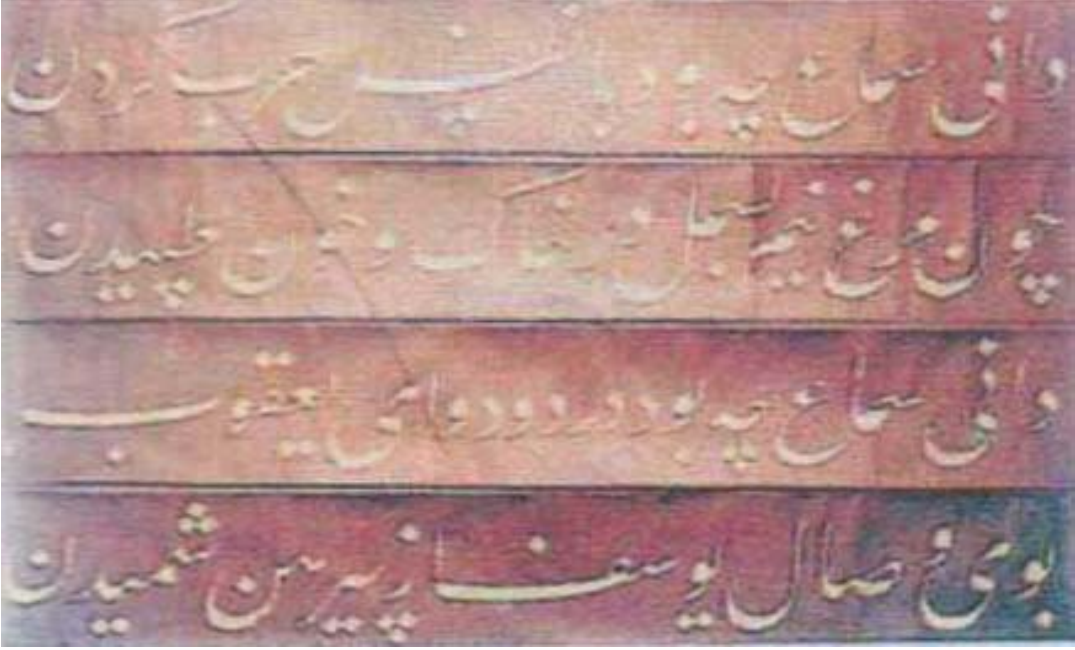 دانی سماع چه بود با نفس حرب کردن
چون مرغ نیم بسمل در خاک و خون طپیدن
دانی سماع چه بود درد و دوای یعقوب
بوی وصال یوسف از پیرهن شمیدن